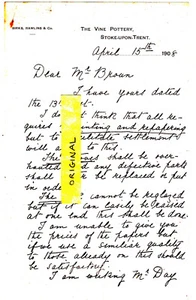 THE VINE POTTERY,
STOKE-UPON-TRENT.
April 15th 1908
Dear Mr Brown
I have yours dated
the 13
I do think that all re-
quires painting and repapering
but to settlement I
will to this.
The shall be over-
hauled any defective parts
shall be replaced or put
in order
The cannot be replaced
but if it can easily be raised
at one end this shall be done.
I am unable to give you
the prices of the paper but
if we use a similar quality
to those already on this should
be satisfactory.
I am writing Mr Day
ORIGINAL